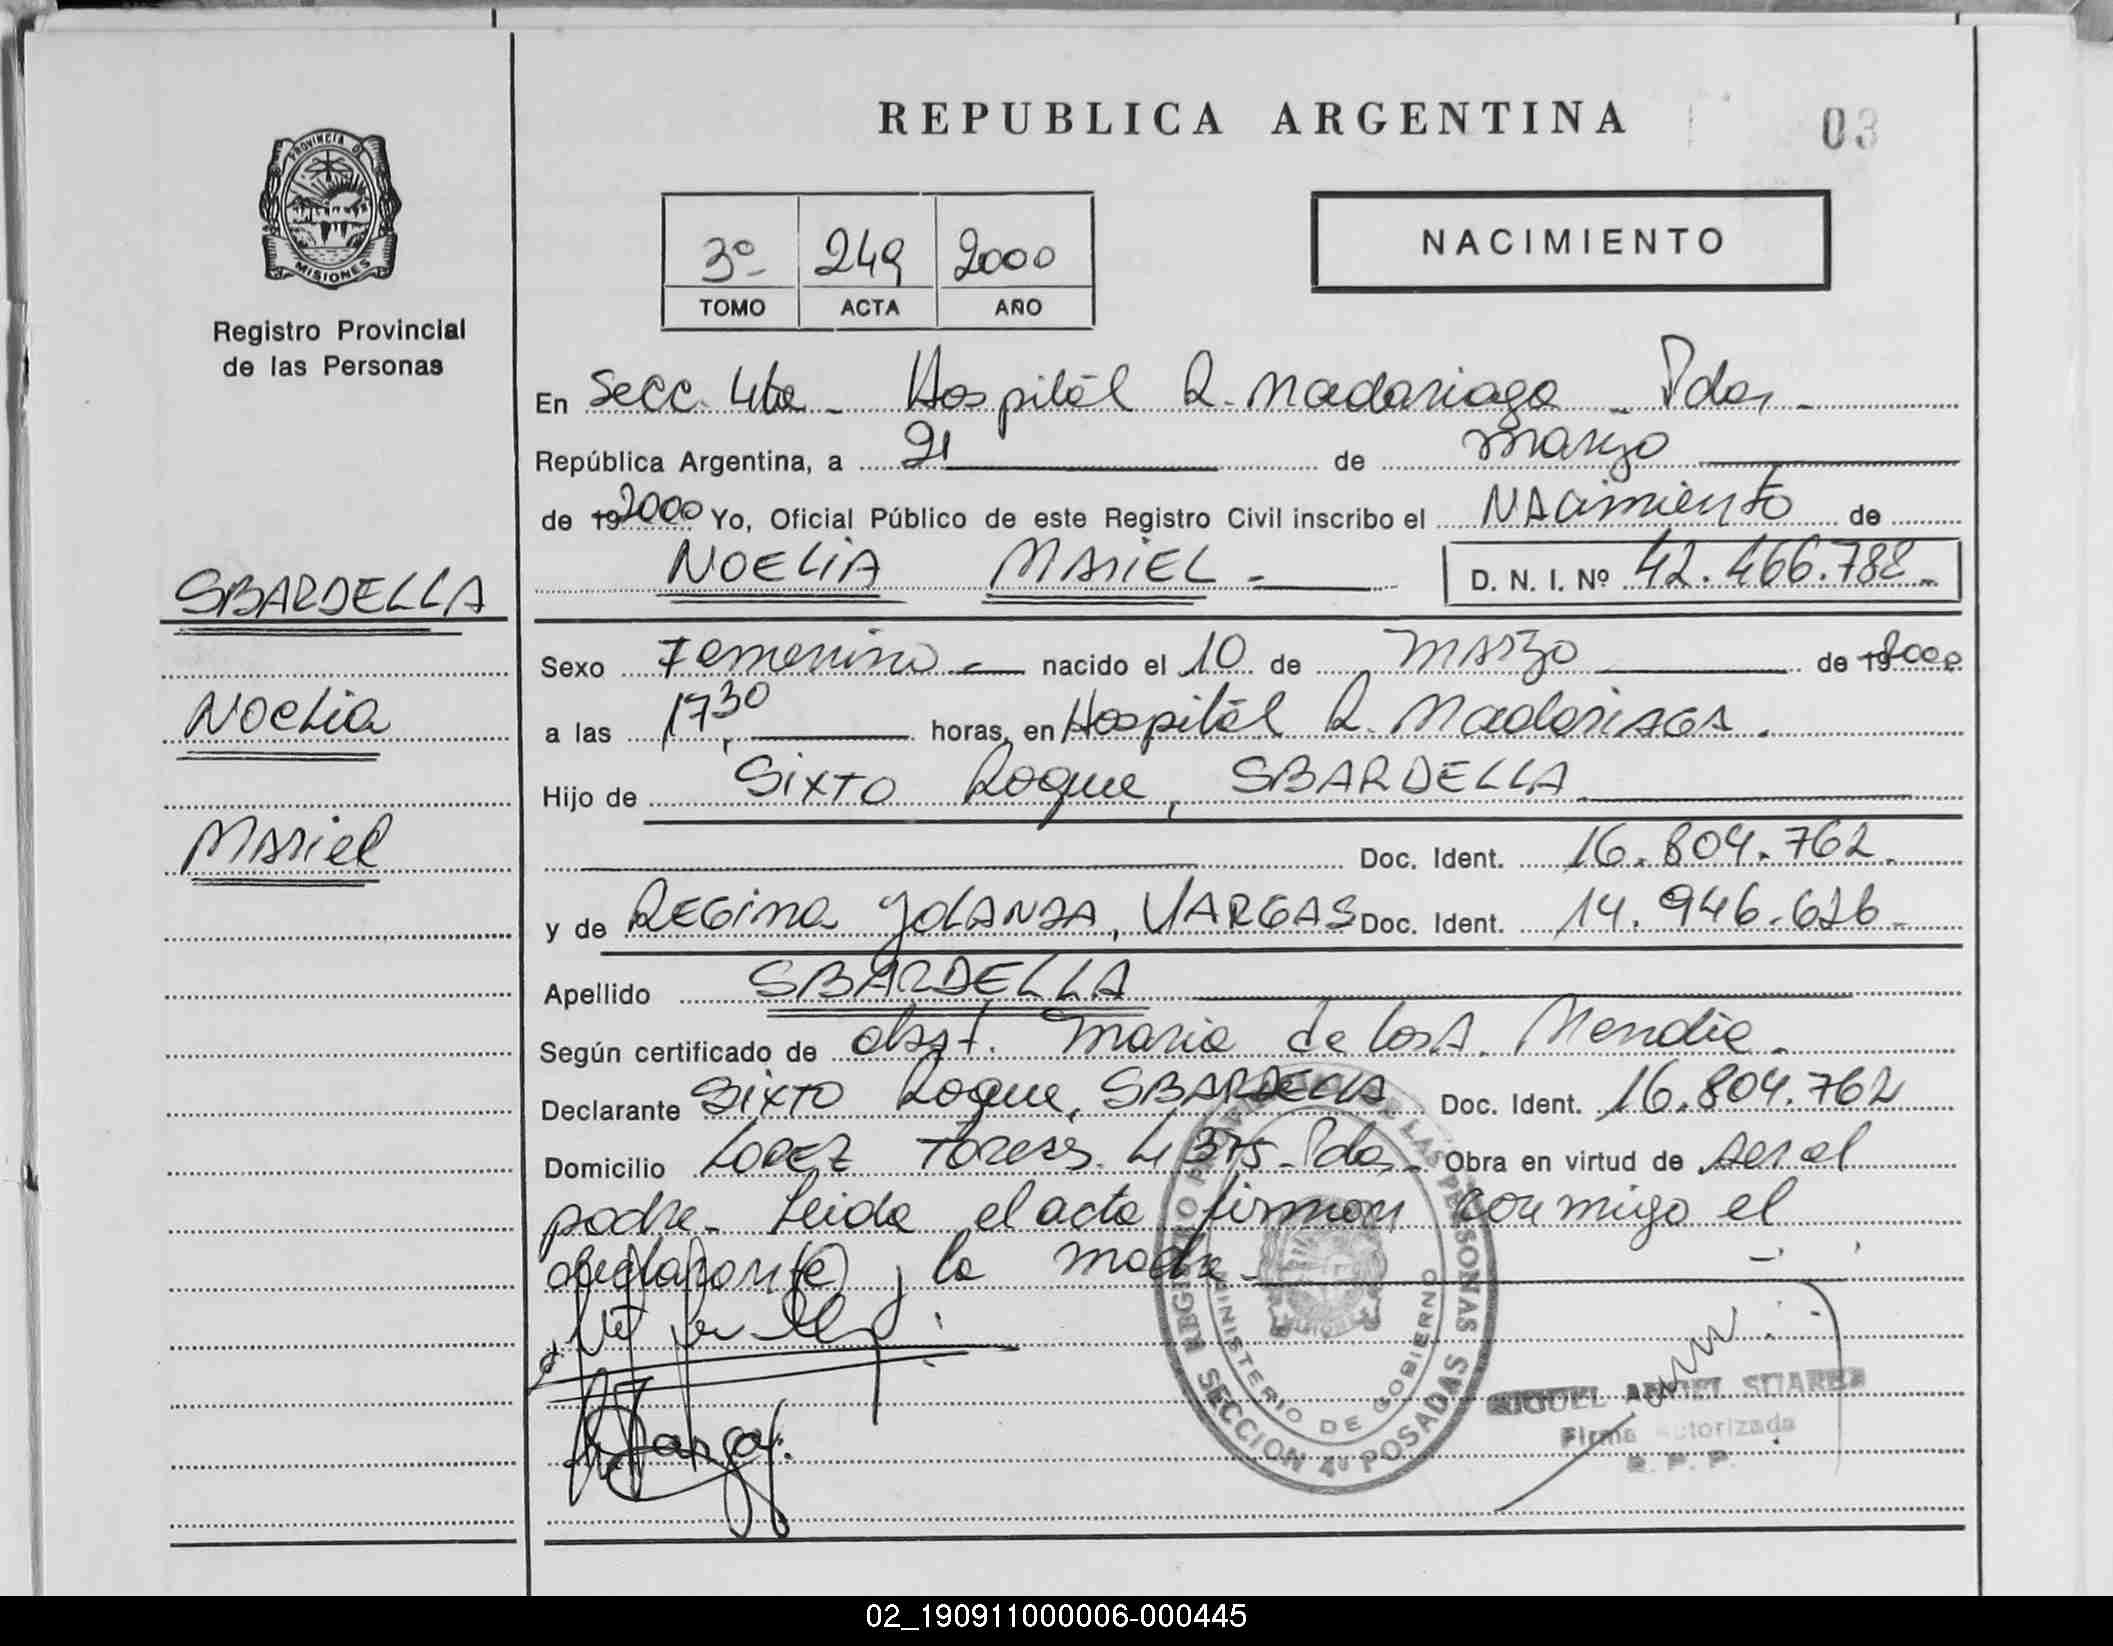 REPUBLICA ARGENTINA
03
PROVINCIA DE
MISIONES
Registro Provincial
de las Personas
3º 249 2000
TOMO ACTA AÑO
NACIMIENTO
En Secc. 4ta - Hospitál R. Madariaga - Pdas -
República Argentina, a 21 de Marzo
de 19 2000 Yo, Oficial Público de este Registro Civil inscribo el NAcimiento de
NOELIA MARIEL - D. N. I. Nº 42.466.788 -
SBARDELLA
Noelia
Mariel
Sexo Femenino - nacido el 10 de MARZO de 19 2000
a las 17,30 horas, en Hospitál R. MadariAGA.
Hijo de SiXTO Roque, SBARDELLA
Doc. Ident. 16.804.762.
y de REGina YOLANDA, VARGAS Doc. Ident. 14.946.626 -
Apellido SBARDELLA
Según certificado de obst. Maria de los A. Mendie -
Declarante SiXTO Roque, SBARDELLA Doc. Ident. 16.804.762
Domicilio LOPEZ TORRES 4375 - Pdas - Obra en virtud de ser el
padre - Leida el acta firman conmigo el
declarante y la madre -
REGISTRO PROVINCIAL DE LAS PERSONAS
MINISTERIO DE GOBIERNO
SECCION 4ª POSADAS
MIGUEL ANGEL SUAREZ
Firma Autorizada
R. P. P.
02_190911000006-000445